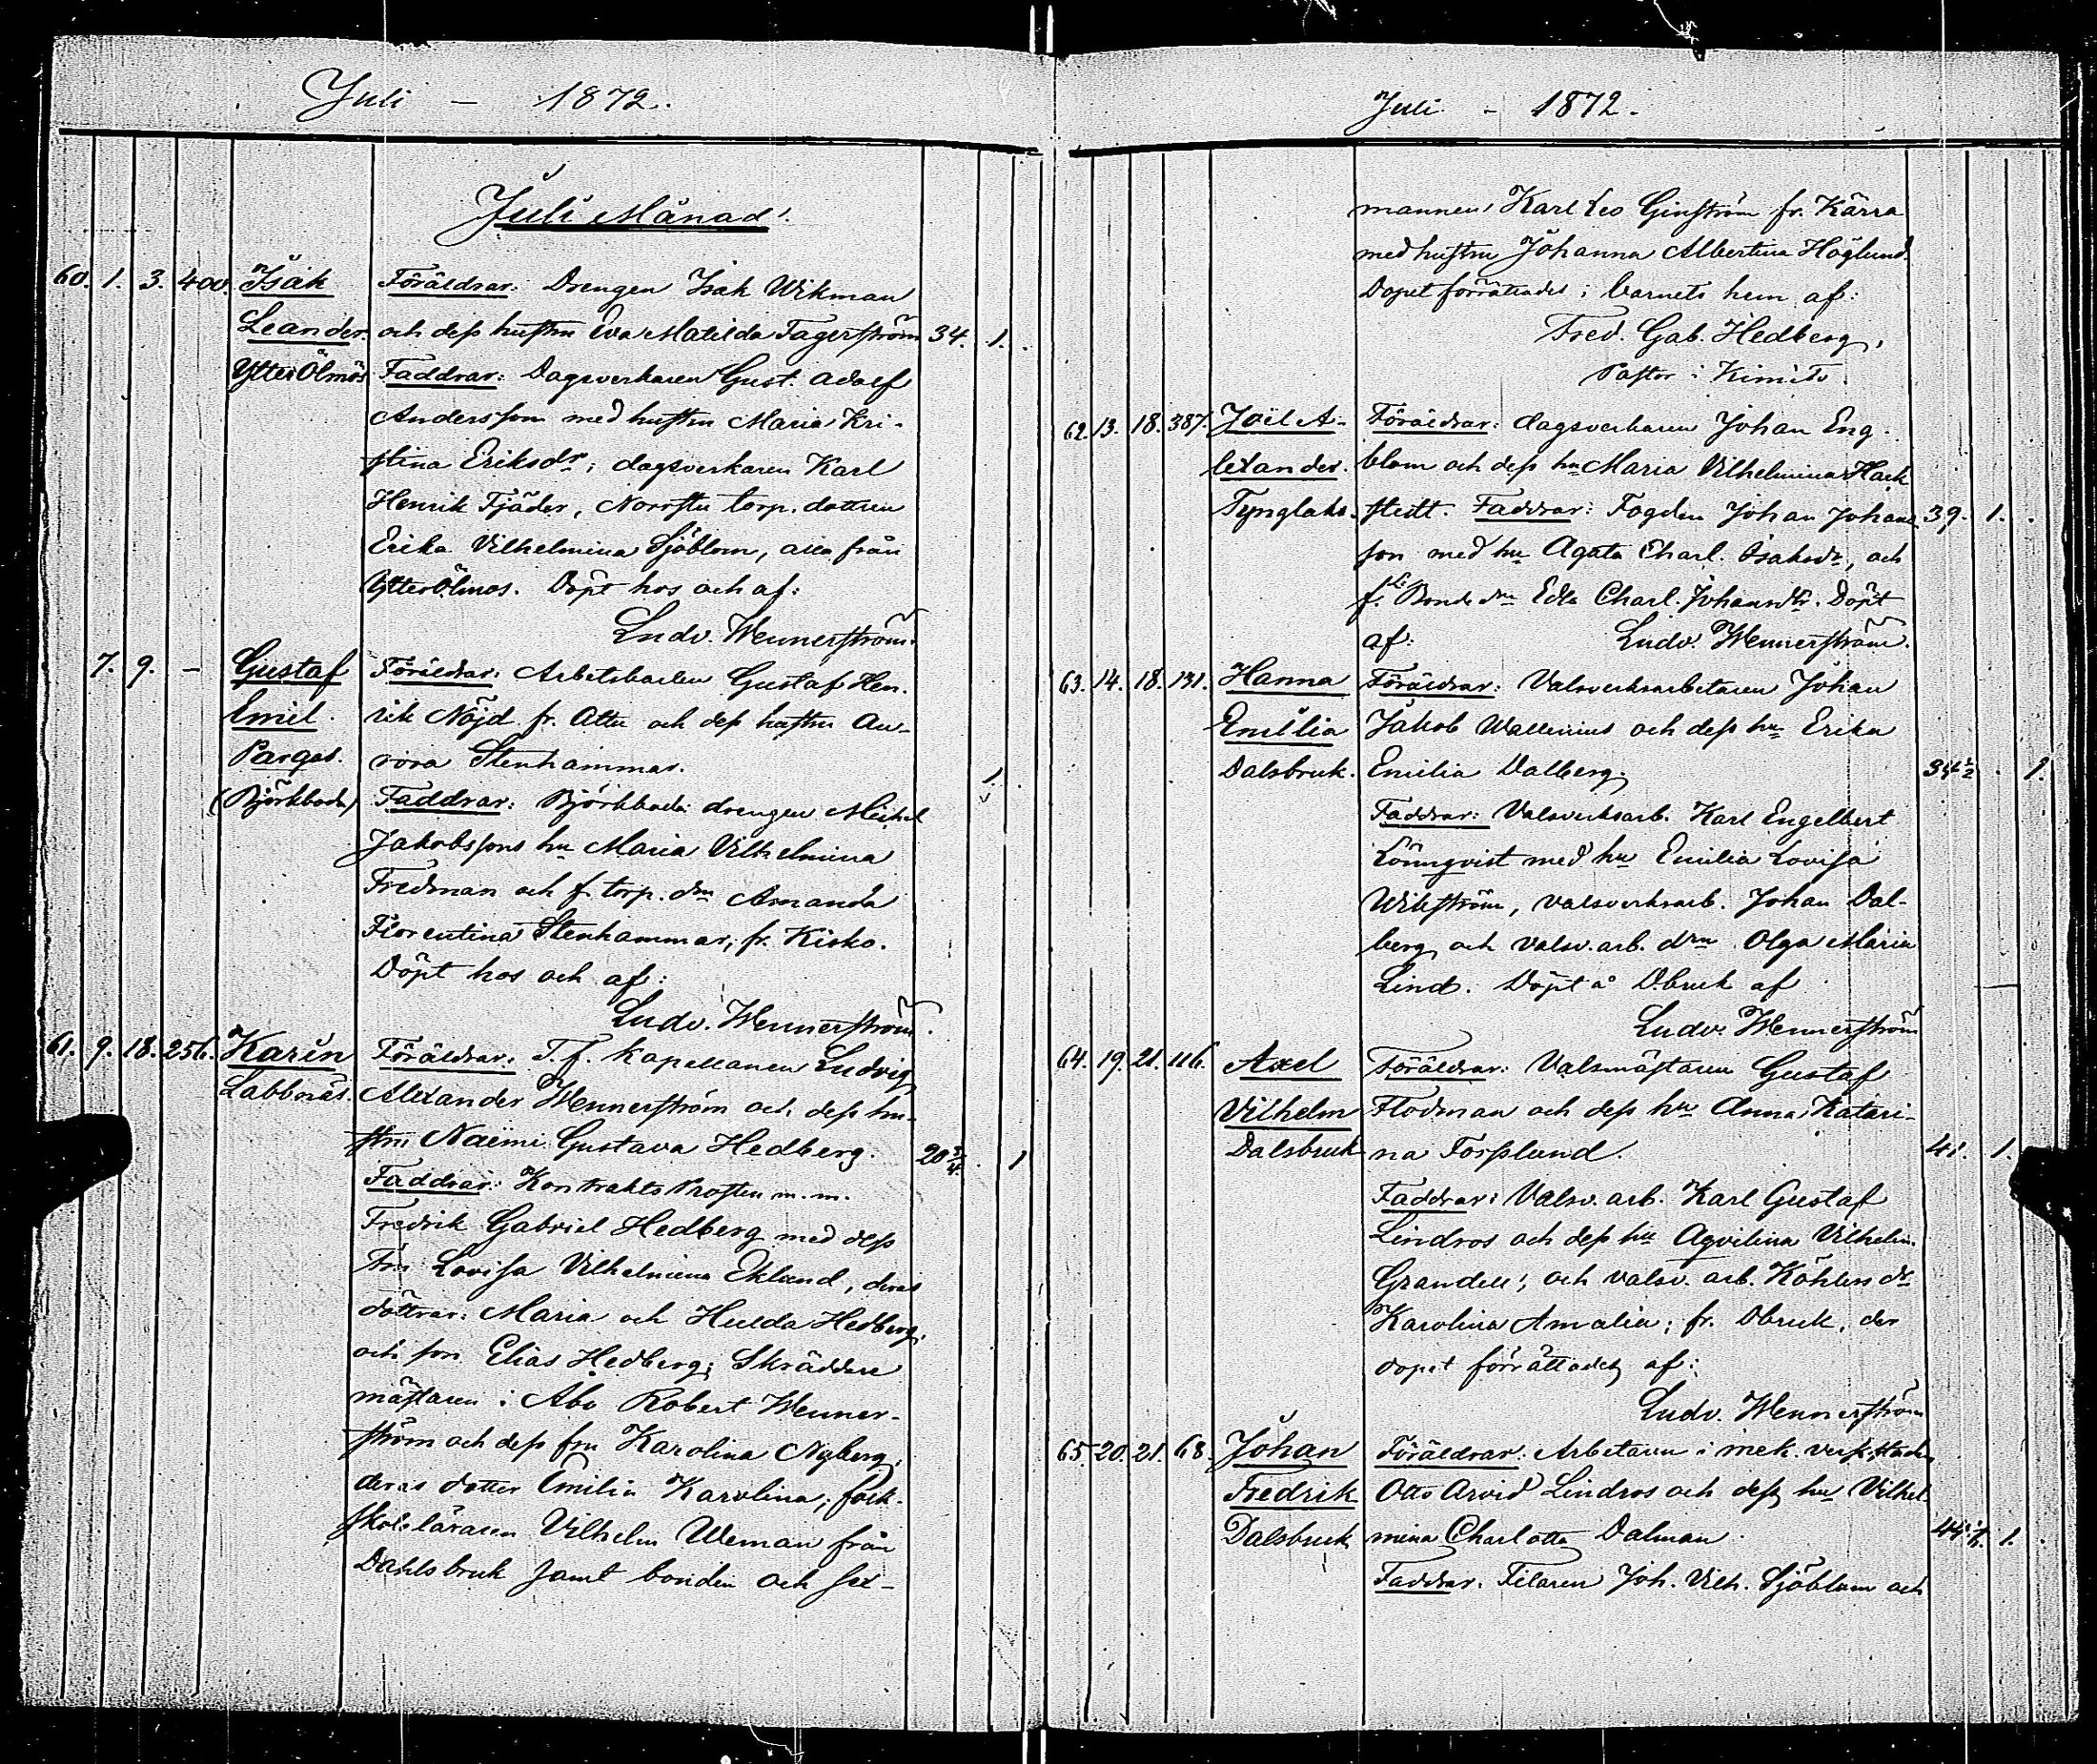 Juli - 1872.
Juli Månad.
60. 1. 3. 400. Isak Föräldrar: Drengen Isak Wikman
Leander. och dess hustru Eva Matilda Fagerström 34. 1.
Ytter Ölmos Faddrar: Dagsverkaren Gust. Adolf
Andersson med hustru Maria Kri-
stina Eriksdr; dagsverkaren Karl
Henrik Fjäder, Norrstu torp. dottren
Erika Vilhelmina Sjöblom, alla från
Ytterölmos. Döpt hos och af:
Ludv. Wennerström.
7. 9. - Gustaf Föräldrar: Arbetskarlen Gustaf Hen-
Emil. rik Nöjd fr. Attu och dess hustru Au-
Pargas. rora Stenhammar. 1.
(Björkboda) Faddrar: Björkboda drengen Michel
Jakobssons hu Maria Vilhelmina
Fredman och f. torp. drn Amanda
Florentina Stenhammar, fr. Kisko.
Döpt hos och af:
Ludv. Wennerström.
61. 9. 18. 256. Karin Föräldrar: T. f. Kapellanen Ludvig
Labbnäs. Alexander Wennerström och dess hu-
stru Naëmi Gustava Hedberg. 20 3/4. 1
Faddrar: Kontrakts Prosten m. m.
Fredrik Gabriel Hedberg med dess
Fru Lovisa Vilhelmina Eklund, deras
döttrar: Maria och Hulda Hedberg,
och son Elias Hedberg; Skräddare
mästaren i Åbo Robert Wenner-
ström och dess fru Karolina Nyberg,
deras dotter Emilia Karolina; folk-
skoleläraren Vilhelm Weman från
Dahlsbruk samt bonden och sex-
Juli - 1872.
mannen Karl Leo Ginström fr. Kärra
med hustru Johanna Albertina Höglund.
Dopet förrättades i barnets hem af:
Fred. Gab. Hedberg,
Pastor i Kimito.
62. 13. 18. 387. Joël A- Föräldrar: dagsverkaren Johan Eng-
lexander. blom och dess hu Maria Vilhelmina Hack
Tynglaks. stedt. Faddrar: Fogden Johan Johans 39. 1.
son med hu Agata Charl. Isaksdr, och
f. Bonde drn Edla Charl. Johansdtr. Döpt
af: Ludv. Wennerström.
63. 14. 18. 131. Hanna Föräldrar: Valsverksarbetaren Johan
Emilia Jakob Wallenius och dess hu Erika
Dalsbruk. Emilia Dalberg. 34 1/2 . 1.
Faddrar: Valsverksarb. Karl Engelbert
Lönnqvist med hu Emilia Lovisa
Wikström, valsverksarb. Johan Dal-
berg och valsv. arb. drn Olga Maria
Lind. Döpt å D.bruk af
Ludv. Wennerström
64. 19. 21. 116. Axel Föräldrar: Valsmästaren Gustaf
Vilhelm Flodman och dess hu Anna Katari-
Dalsbruk na Forsslund. 41. 1.
Faddrar: Valsv. arb. Karl Gustaf
Lindros och dess hu Aqvilina Vilhelm.
Grandell; och valsv. arb. Köhlers dr
Karolina Amalia; fr. Dbruk, der
dopet förrättades af:
Ludv. Wennerström
65. 20. 21. 68. Johan Föräldrar: Arbetaren i mek. verkstaden
Fredrik Otto Arvid Lindros och dess hu Vilhel-
Dalsbruk mina Charlotta Dalman. 44 1/2. 1.
Faddrar. Filaren Joh. Vilh. Sjöblom och